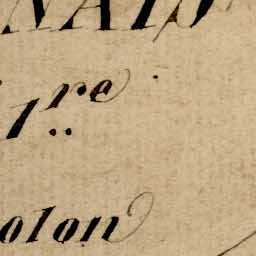 NAID
1re
olon